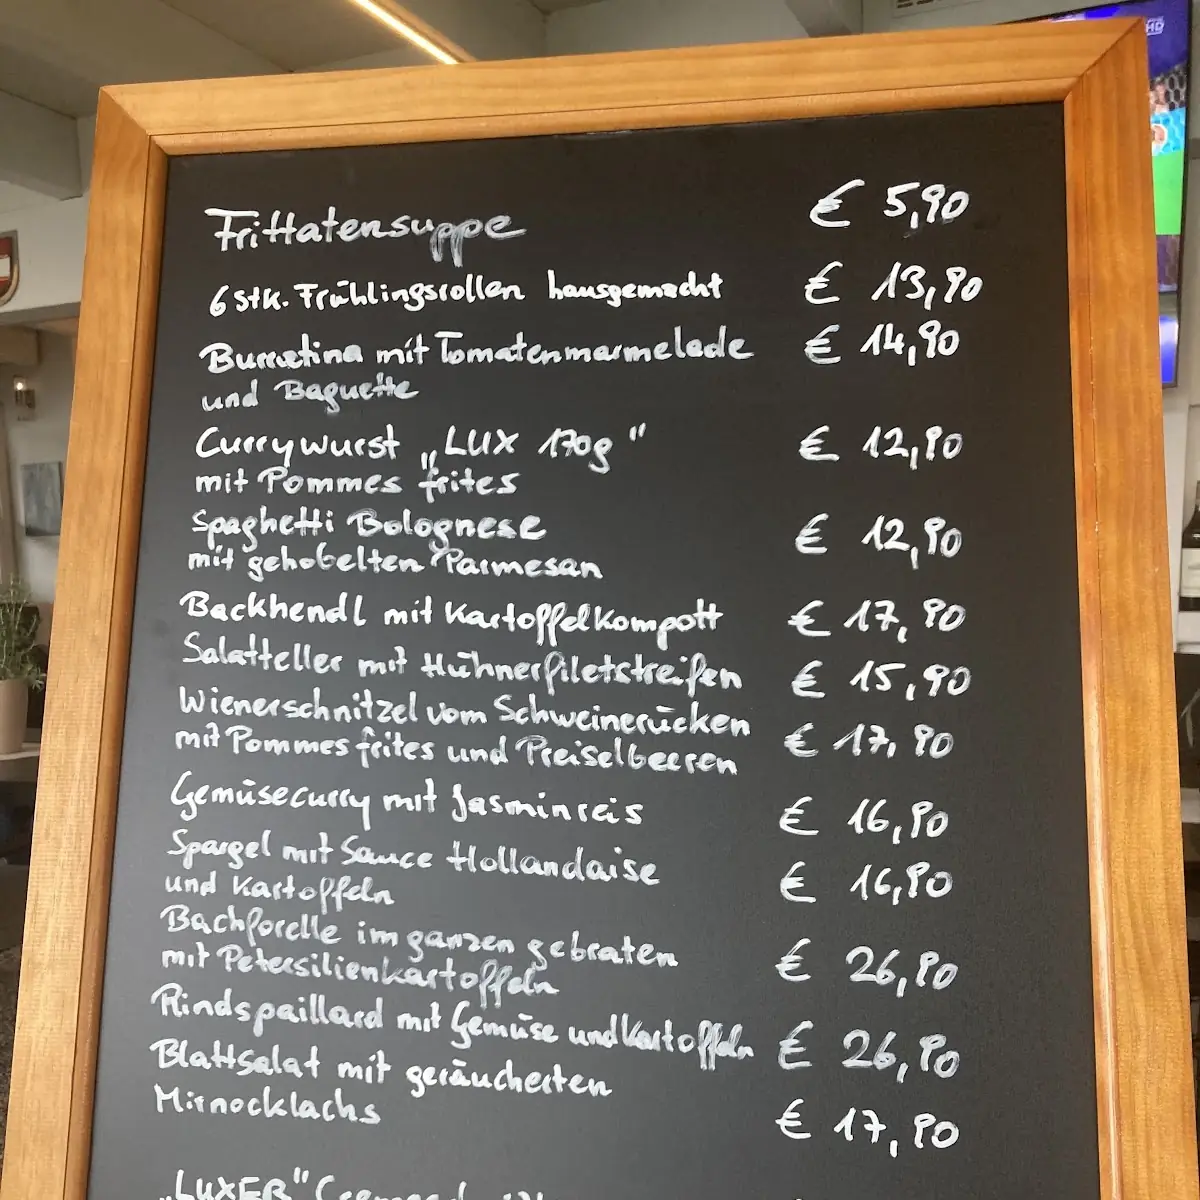 Frittatensuppe € 5,90
6 Stk. Frühlingsrollen hausgemacht € 13,90
Burratina mit Tomatenmarmelade € 14,90
und Baguette
Currywurst „LUX 170g" € 12,90
mit Pommes frites
Spaghetti Bolognese € 12,90
mit gehobelten Parmesan
Backhendl mit Kartoffelkompott € 17,90
Salatteller mit Hühnerfiletstreifen € 15,90
Wienerschnitzel vom Schweinerücken € 17,90
mit Pommes frites und Preiselbeeren
Gemüsecurry mit Jasminreis € 16,90
Spargel mit Sauce Hollandaise € 16,90
und Kartoffeln
Bachforelle im ganzen gebraten € 26,90
mit Petersilienkartoffeln
Rindspaillard mit Gemüse und Kartoffeln € 26,90
Blattsalat mit geräucherten
Mirnocklachs € 17,90
„LUXER"